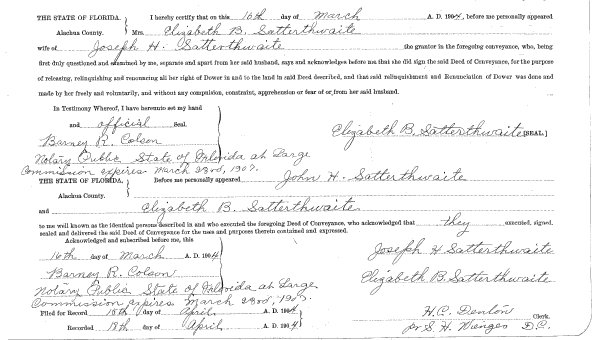 THE STATE OF FLORIDA. } I hereby certify that on this 16th day of March A. D. 1904, before me personally appeared
Alachua County. Mrs. Elizabeth B. Satterthwaite
wife of Joseph H. Satterthwaite the grantor in the foregoing conveyance, who, being
first duly questioned and examined by me, separate and apart from her said husband, says and acknowledges before me that she did sign the said Deed of Conveyance, for the purpose
of releasing, relinquishing and renouncing all her right of Dower in and to the land in said Deed described, and that said relinquishment and Renunciation of Dower was done and
made by her freely and voluntarily, and without any compulsion, constraint, apprehension or fear of or from her said husband.
In Testimony Whereof, I have hereunto set my hand
and official Seal.
Elizabeth B. Satterthwaite [SEAL.]
Barney R. Colson
Notary Public State of Florida at Large
Commission expires March 23rd, 1907.
THE STATE OF FLORIDA. } Before me personally appeared John H. Satterthwaite
Alachua County.
and Elizabeth B. Satterthwaite
to me well known as the identical persons described in and who executed the foregoing Deed of Conveyance, who acknowledged that they executed, signed,
sealed and delivered the said Deed of Conveyance for the uses and purposes therein contained and expressed.
Acknowledged and subscribed before me, this
16th day of March A. D. 1904
Joseph H Satterthwaite
Barney R. Colson
Elizabeth B. Satterthwaite
Notary Public State of Florida at Large
Commission expires March 23rd, 1907.
Filed for Record 16th day of April A. D. 1904
H. C. Denton Clerk.
Recorded 18th day of April A. D. 1904
pr S. H. Wienges D.C.